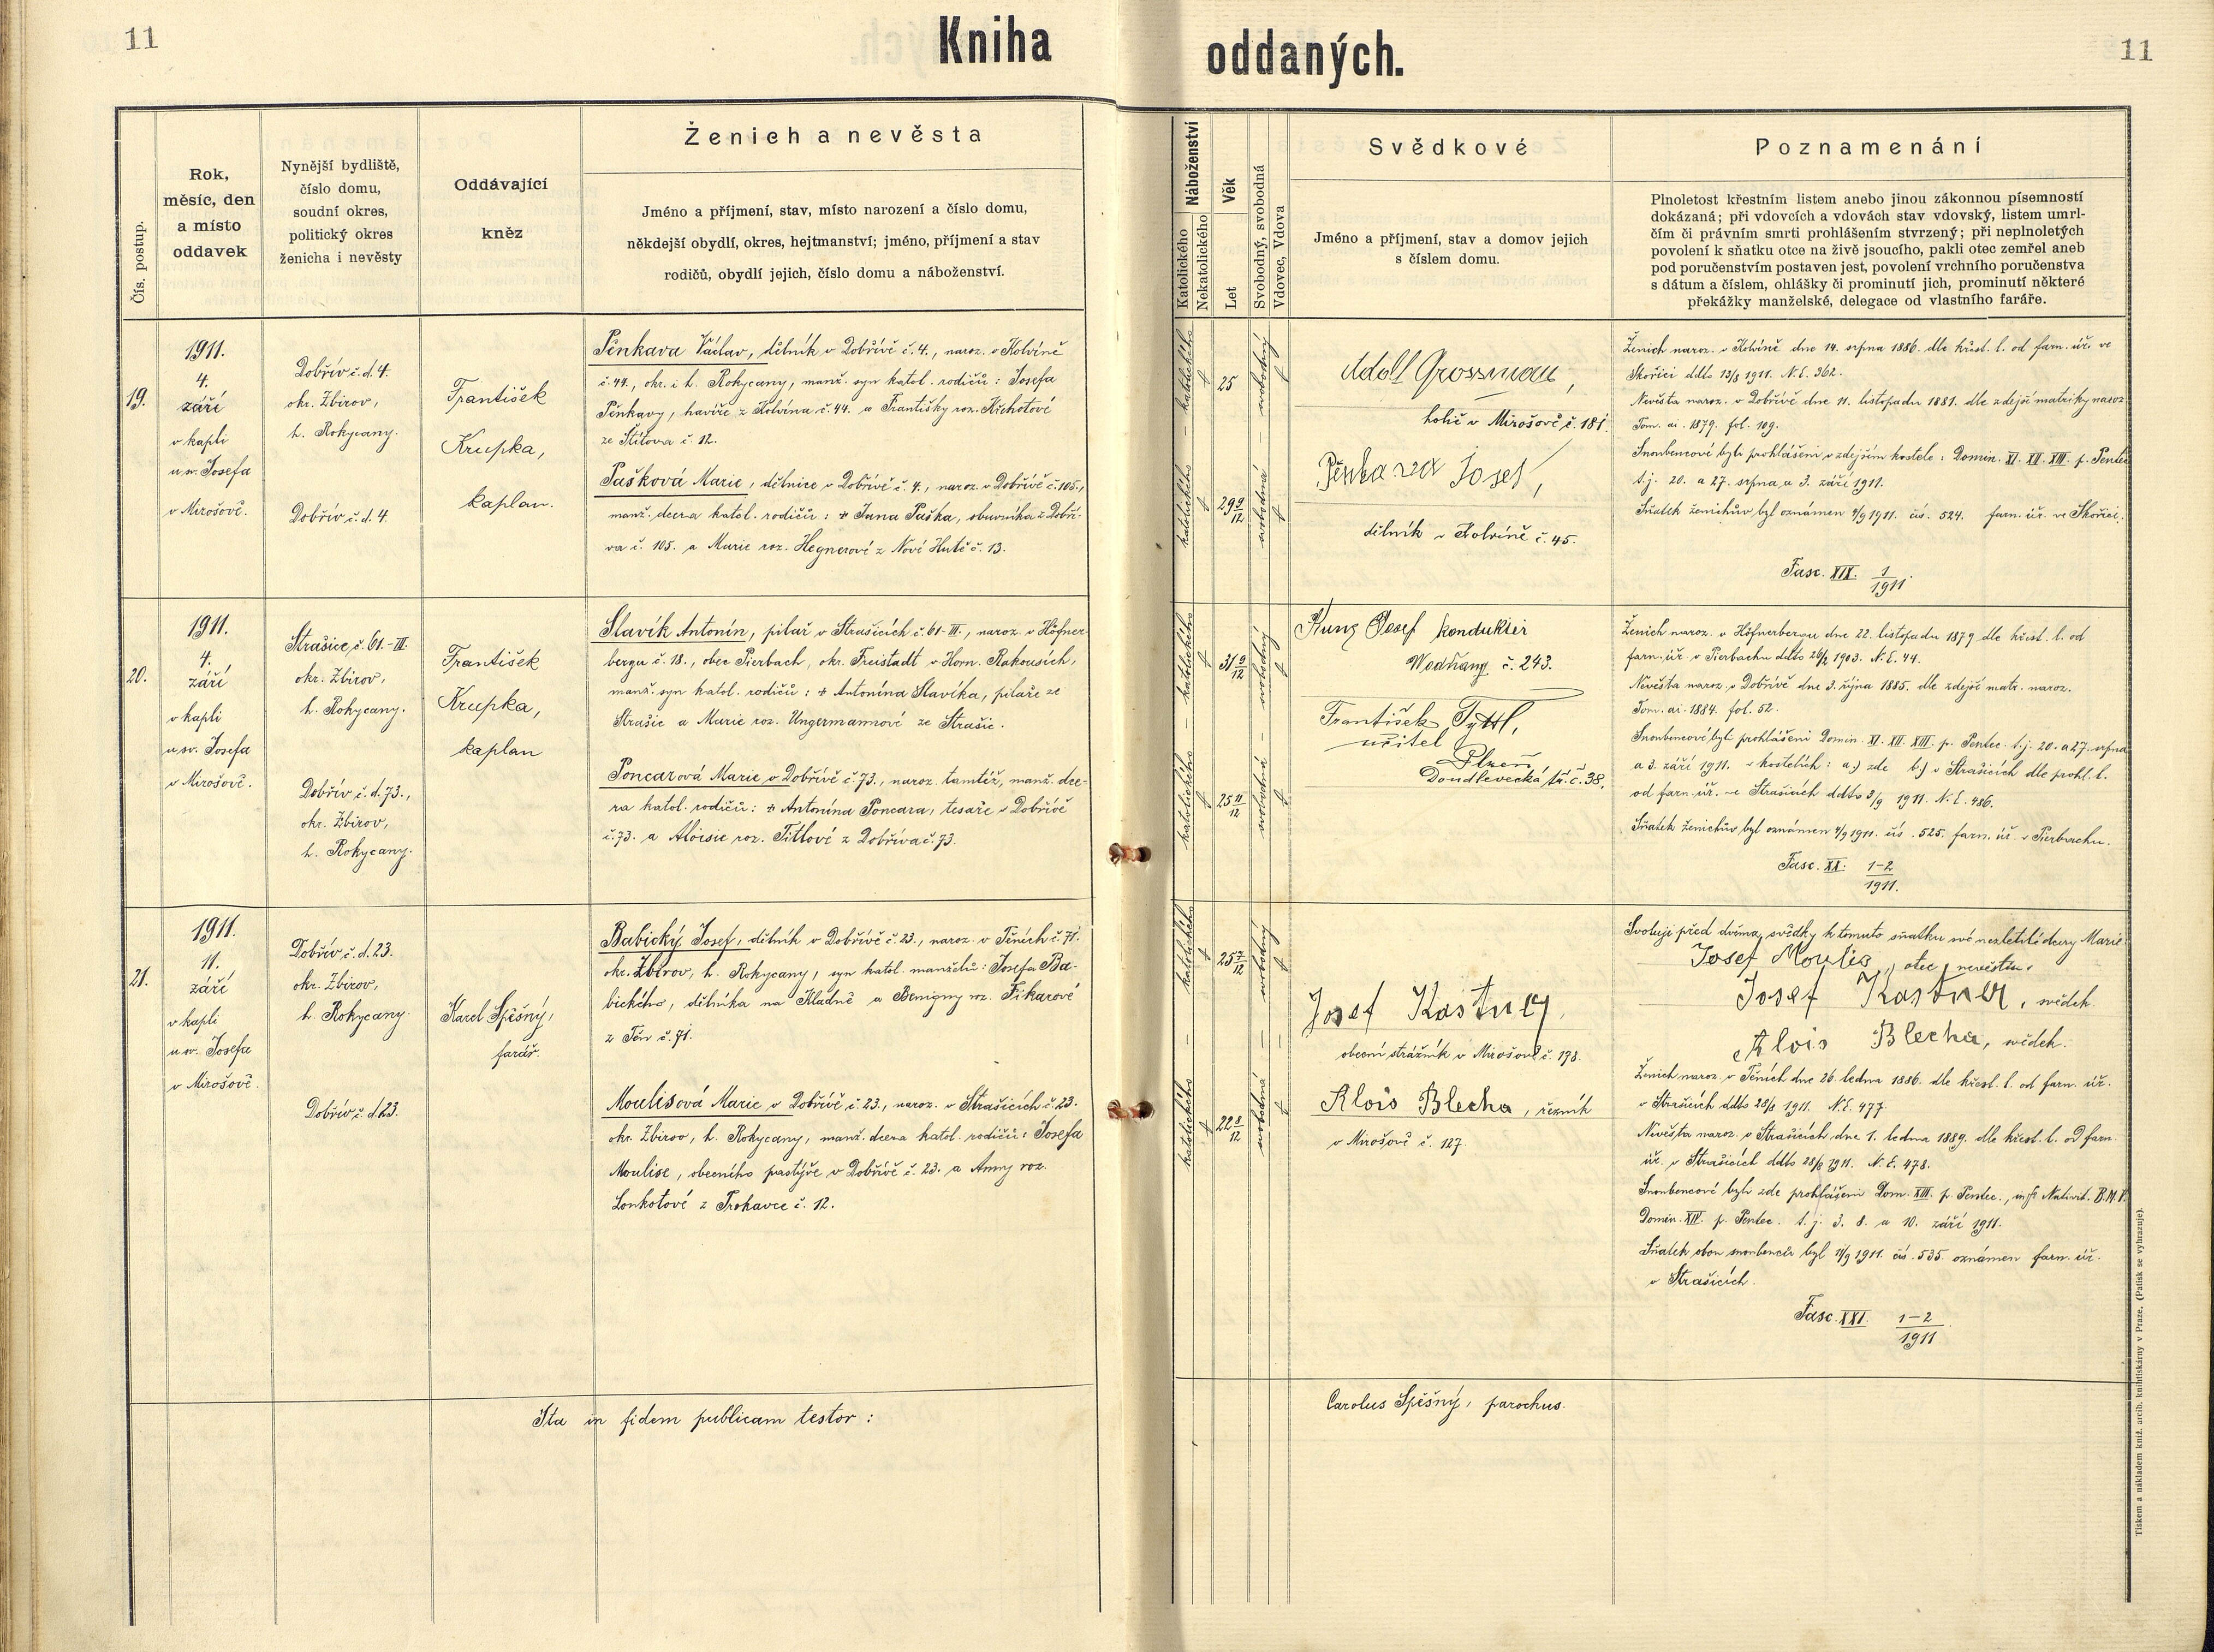 11
Kniha oddaných.
11
Čís. postup.
Rok,
měsíc, den
a místo
oddavek
Nynější bydliště,
číslo domu,
soudní okres,
politický okres
ženicha i nevěsty
Oddávající
kněz
Ženich a nevěsta
Jméno a příjmení, stav, místo narození a číslo domu,
někdejší obydlí, okres, hejtmanství; jméno, příjmení a stav
rodičů, obydlí jejich, číslo domu a náboženství.
Náboženství
Katolického
Nekatolického
Věk
Let
Svobodný, svobodná
Vdovec, Vdova
Svědkové
Jméno a příjmení, stav a domov jejich
s číslem domu.
Poznamenání
Plnoletost křestním listem anebo jinou zákonnou písemností
dokázaná; při vdovcích a vdovách stav vdovský, listem umrl-
čím či právním smrti prohlášením stvrzený; při neplnoletých
povolení k sňatku otce na živě jsoucího, pakli otec zemřel aneb
pod poručenstvím postaven jest, povolení vrchního poručenstva
s dátum a číslem, ohlášky či prominutí jich, prominutí některé
překážky manželské, delegace od vlastního faráře.
19.
1911.
4.
září
v kapli
u sv. Josefa
v Mirošově.
Dobřív č. d. 4.
okr. Zbirov,
h. Rokycany.
Dobřív č. d. 4.
František
Krupka,
kaplan.
Pěnkava Václav, dělník v Dobřívě č. 4., naroz. v Kolvíně
č. 44., okr. i h. Rokycany, manž. syn katol. rodičů: Josefa
Pěnkavy, havíře z Kolvína č. 44. a Františky roz. Křchotové
ze Štítova č. 12.
Pašková Marie, dělnice v Dobřívě č. 4., naroz. v Dobřívě č. 105.,
manž. dcera katol. rodičů: + Jana Paška, obuvníka z Dobří-
va č. 105. a Marie roz. Hegnerové z Nové Hutě č. 13.
katolického
25
svobodný
katolického
29 9/12
svobodná
Adolf Grossman,
holič v Mirošově č. 181.
Pěnkava Josef,
dělník v Kolvíně č. 45.
Ženich naroz. v Kolvíně dne 14. srpna 1886. dle křest. l. od farn. úř. ve
Skořici ddto 13/8 1911. N. E. 362.
Nevěsta naroz. v Dobřívě dne 11. listopadu 1881. dle zdejší matriky naroz.
Tom. ai. 1879. fol. 109.
Snoubencové byli prohlášeni v zdejším kostele: Domin. XI. XII. XIII. p. Pentec
t. j. 20. a 27. srpna a 3. září 1911.
Sňatek ženichův byl oznámen 4/9 1911. čís. 524. farn. úř. ve Skořici.
Fasc. XIX. 1/1911.
20.
1911.
4.
září
v kapli
u sv. Josefa
v Mirošově.
Strašice č. 61.-III.
okr. Zbirov,
h. Rokycany.
Dobřív č. d. 73.,
okr. Zbirov,
h. Rokycany.
František
Krupka,
kaplan
Slavík Antonín, pilař v Strašicích č. 61-III., naroz. v Höfner-
bergu č. 18., obec Pierbach, okr. Freistadt v Horn. Rakousích,
manž. syn katol. rodičů: + Antonína Slavíka, pilaře ze
Strašic a Marie roz. Ungermannové ze Strašic.
Poncarová Marie v Dobřívě č. 73., naroz. tamtéž, manž. dce-
ra katol. rodičů: + Antonína Poncara, tesaře v Dobřívě
č. 73. a Aloisie roz. Titlové z Dobříva č. 73.
katolického
31 9/12
svobodný
katolického
25 11/12
svobodná
Kunz Josef konduktér
Wodňany č. 243.
František Tyttl,
učitel
Plzeň
Doudlevecká tř. č. 38.
Ženich naroz. v Höfnerbergu dne 22. listopadu 1879 dle křest. l. od
farn. úř. v Pierbachu ddto 26/2 1903. N. E. 44.
Nevěsta naroz. v Dobřívě dne 3. října 1885. dle zdejší matr. naroz.
Tom. ai. 1884. fol. 52.
Snoubencové byli prohlášeni Domin. XI. XII. XIII. p. Pentec. t. j. 20. a 27. srpna
a 3. září 1911. v kostelích: a.) zde b.) v Strašicích dle prohl. l.
od farn. úř. ve Strašicích ddto 3/9 1911. N. E. 486.
Sňatek ženichův byl oznámen 4/9 1911. čís. 525. farn. úř. v Pierbachu.
Fasc. XX. 1-2/1911.
21.
1911.
11.
září
v kapli
u sv. Josefa
v Mirošově.
Dobřív č. d. 23.
okr. Zbirov,
h. Rokycany.
Dobřív č. d. 23.
Karel Spěšný,
farář.
Babický Josef, dělník v Dobřívě č. 23., naroz. v Těních č. 71.
okr. Zbirov, h. Rokycany, syn katol. manželů: Josefa Ba-
bického, dělníka na Kladně a Benigny roz. Fikarové
z Těň č. 71.
Moulisová Marie v Dobřívě č. 23., naroz. v Strašicích č. 23.
okr. Zbirov, h. Rokycany, manž. dcera katol. rodičů: Josefa
Moulise, obecního pastýře v Dobřívě č. 23. a Anny roz.
Lonkotové z Trokavce č. 12.
katolického
25 7/12
svobodný
katolického
22 8/12
svobodná
Josef Kastner,
obecní strážník v Mirošově č. 198.
Alois Blecha, řezník
v Mirošově č. 127.
Svoluji před dvěma svědky k tomuto sňatku své nezletilé dcery Marie
Josef Moulis, otec nevěstin.
Josef Kastner, svědek.
Alois Blecha, svědek.
Ženich naroz. v Těních dne 26. ledna 1886. dle křest. l. od farn. úř.
v Strašicích ddto 28/8 1911. N. E. 477.
Nevěsta naroz. v Strašicích dne 1. ledna 1889. dle křest. l. od farn.
úř. v Strašicích ddto 28/8 1911. N. E. 478.
Snoubencové byli zde prohlášeni Dom. XIII. p. Pentec., in f. Nativit. B. M. V.
Domin. XIV. p. Pentec. t. j. 3. 8. a 10. září 1911.
Sňatek obou snoubenců byl 11/9 1911. čís. 535. oznámen farn. úř.
v Strašicích.
Fasc. XXI. 1-2/1911
Ita in fidem publicam testor:
Carolus Spěšný, parochus.
Tiskem a nákladem kníž. arcib. knihtiskárny v Praze. (Patisk se vyhrazuje).